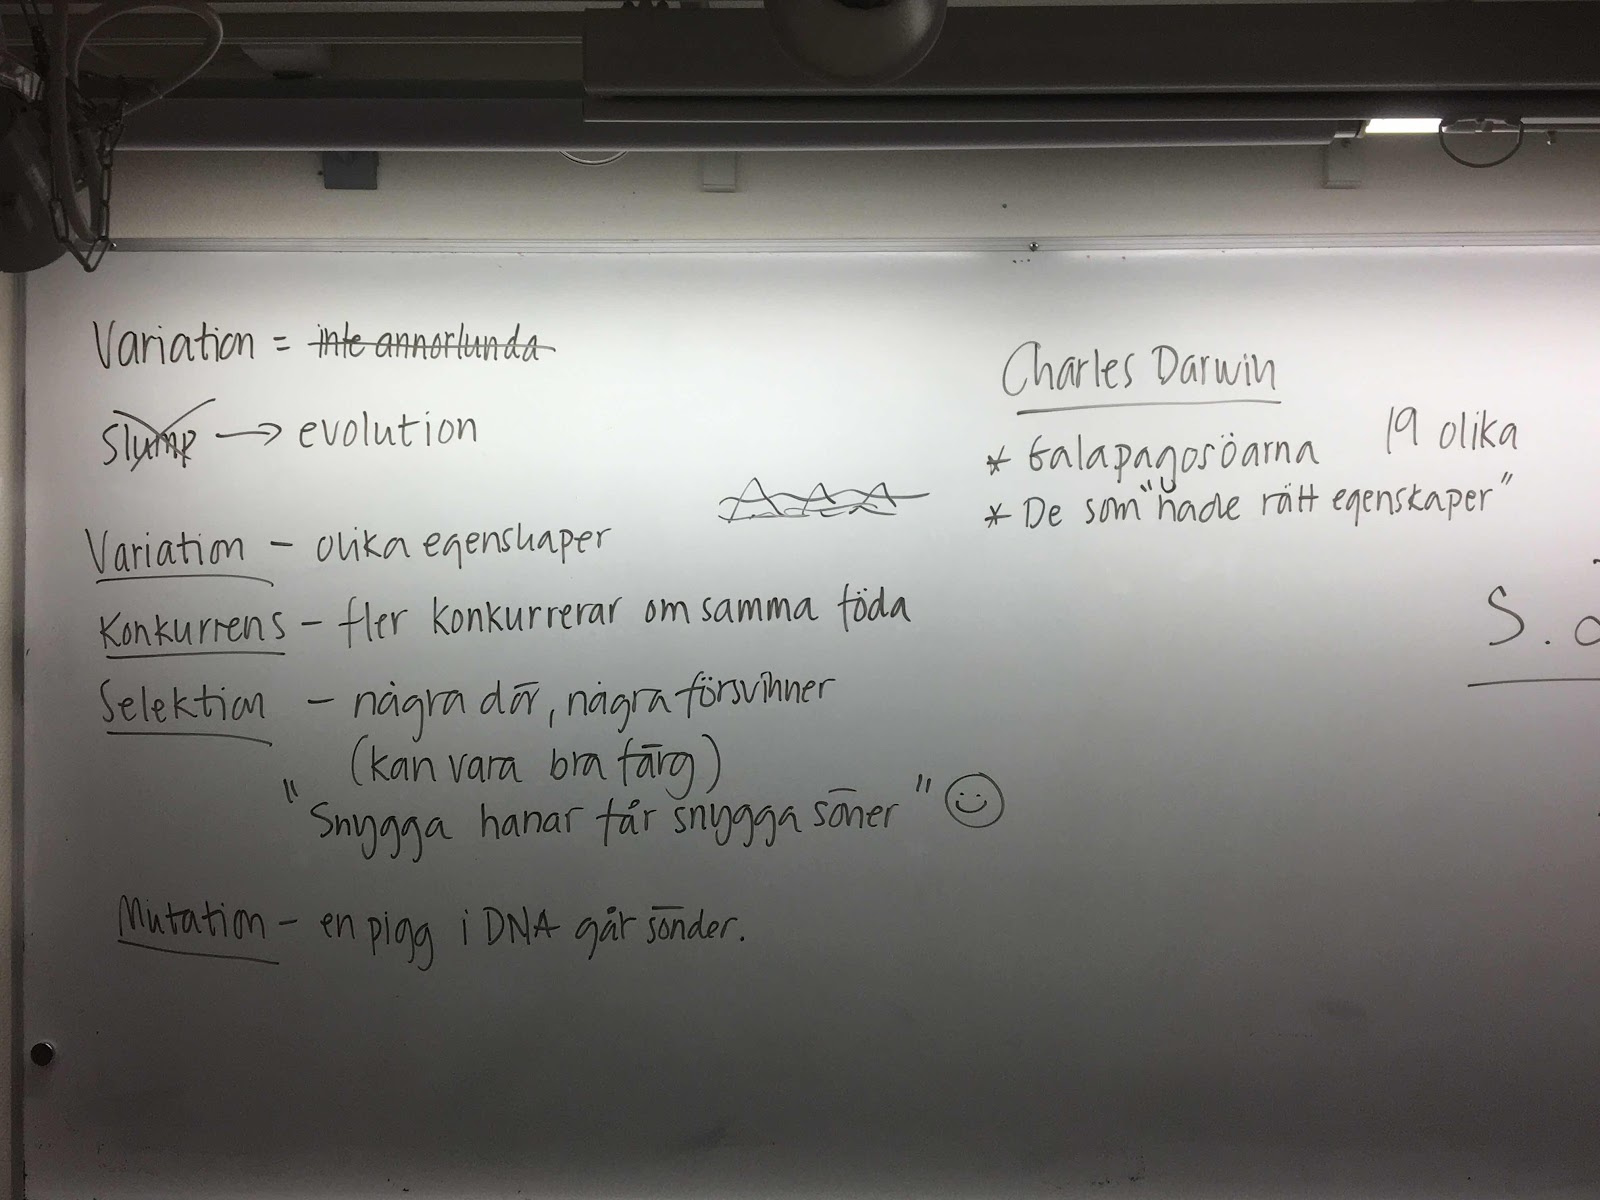 Variation = inte annorlunda
slump → evolution
Variation - olika egenskaper
Konkurrens - fler konkurrerar om samma föda
Selektion - några dör, några försvinner
(kan vara bra färg)
"Snygga hanar får snygga söner"
Mutation - en pigg i DNA går sönder.
Charles Darwin
* Galapagosöarna 19 olika
* De som "hade rätt egenskaper"
S.